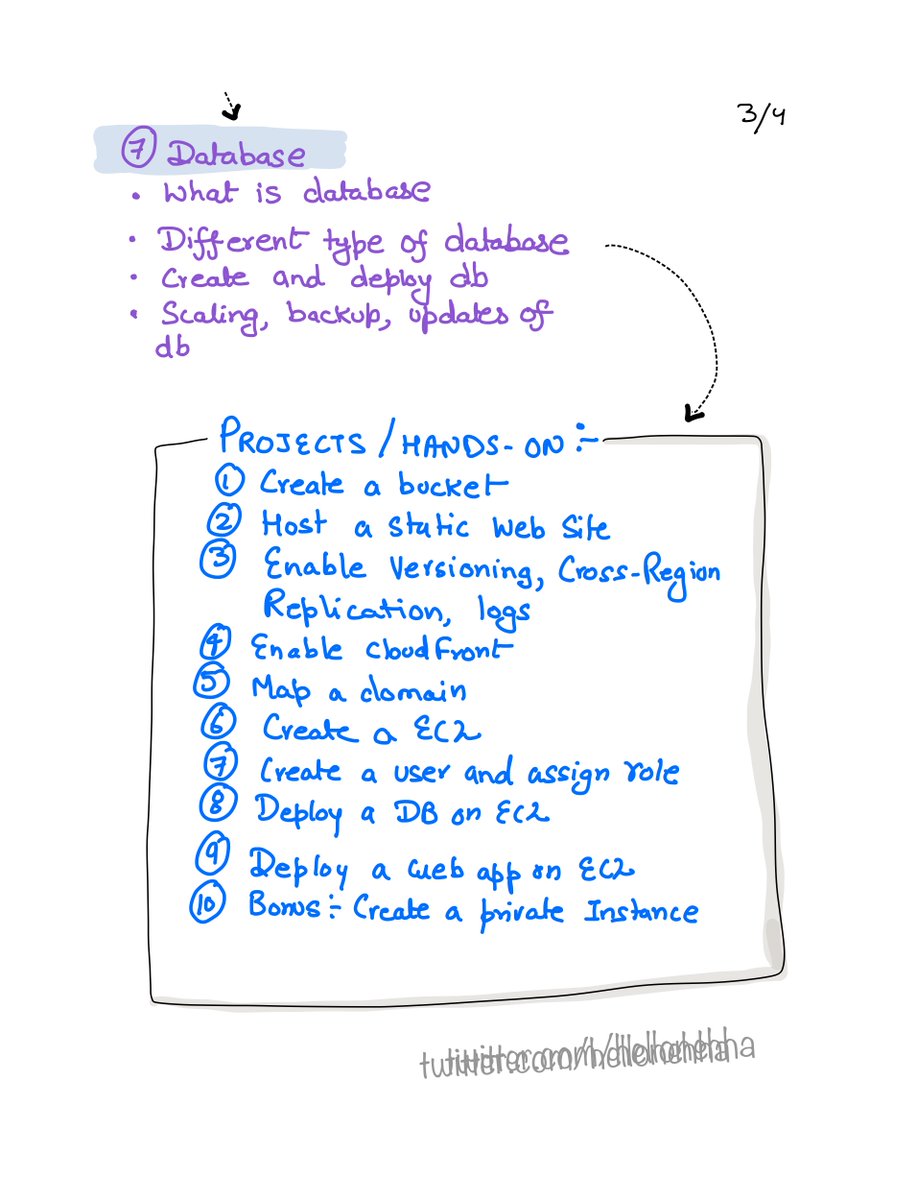 3/4
7 Database
• What is database
• Different type of database
• Create and deploy db
• Scaling, backup, updates of
db
PROJECTS / HANDS-ON :-
1 Create a bucket
2 Host a Static Web Site
3 Enable Versioning, Cross-Region
Replication, logs
4 Enable CloudFront
5 Map a domain
6 Create a EC2
7 Create a user and assign role
8 Deploy a DB on EC2
9 Deploy a web app on EC2
10 Bonus :- Create a private Instance